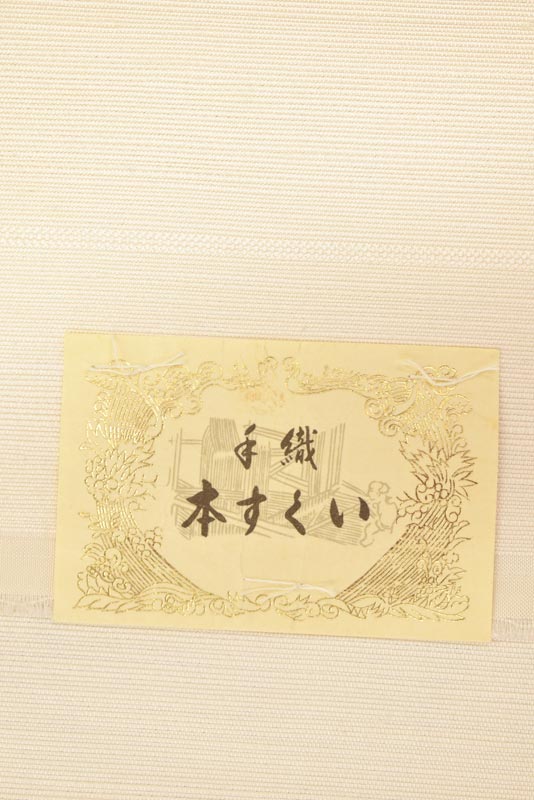 手織
本すくい